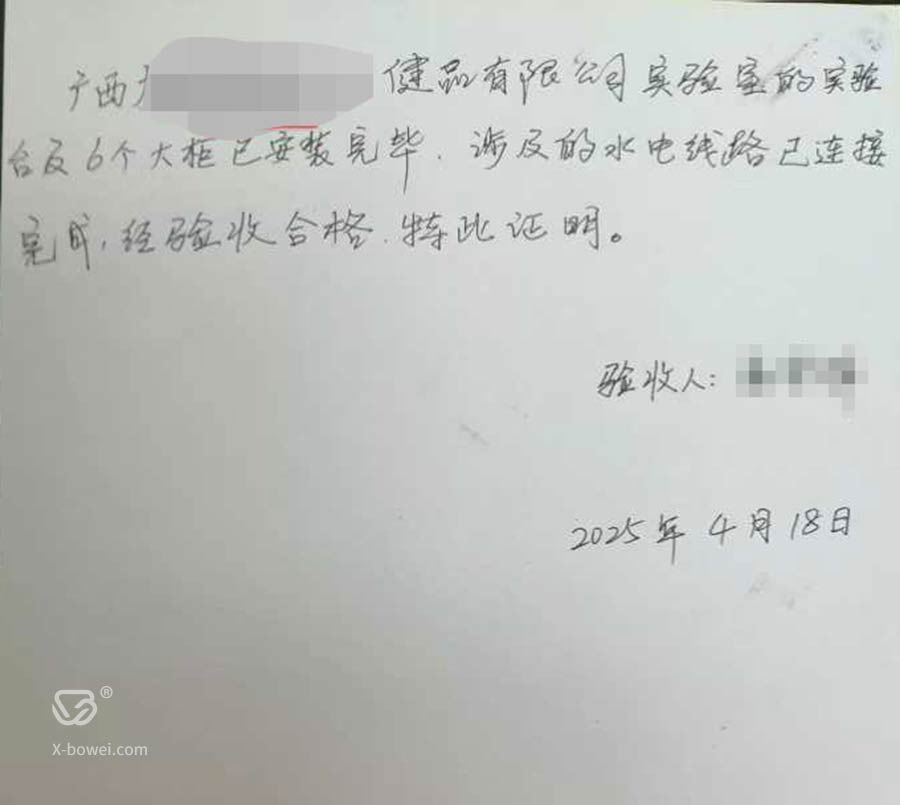 广西 健品有限公司实验室的实验
台及6个大柜已安装完毕.涉及的水电线路已连接
完成,经验收合格.特此证明。
验收人:
2025年4月18日
®
X-bowei.com